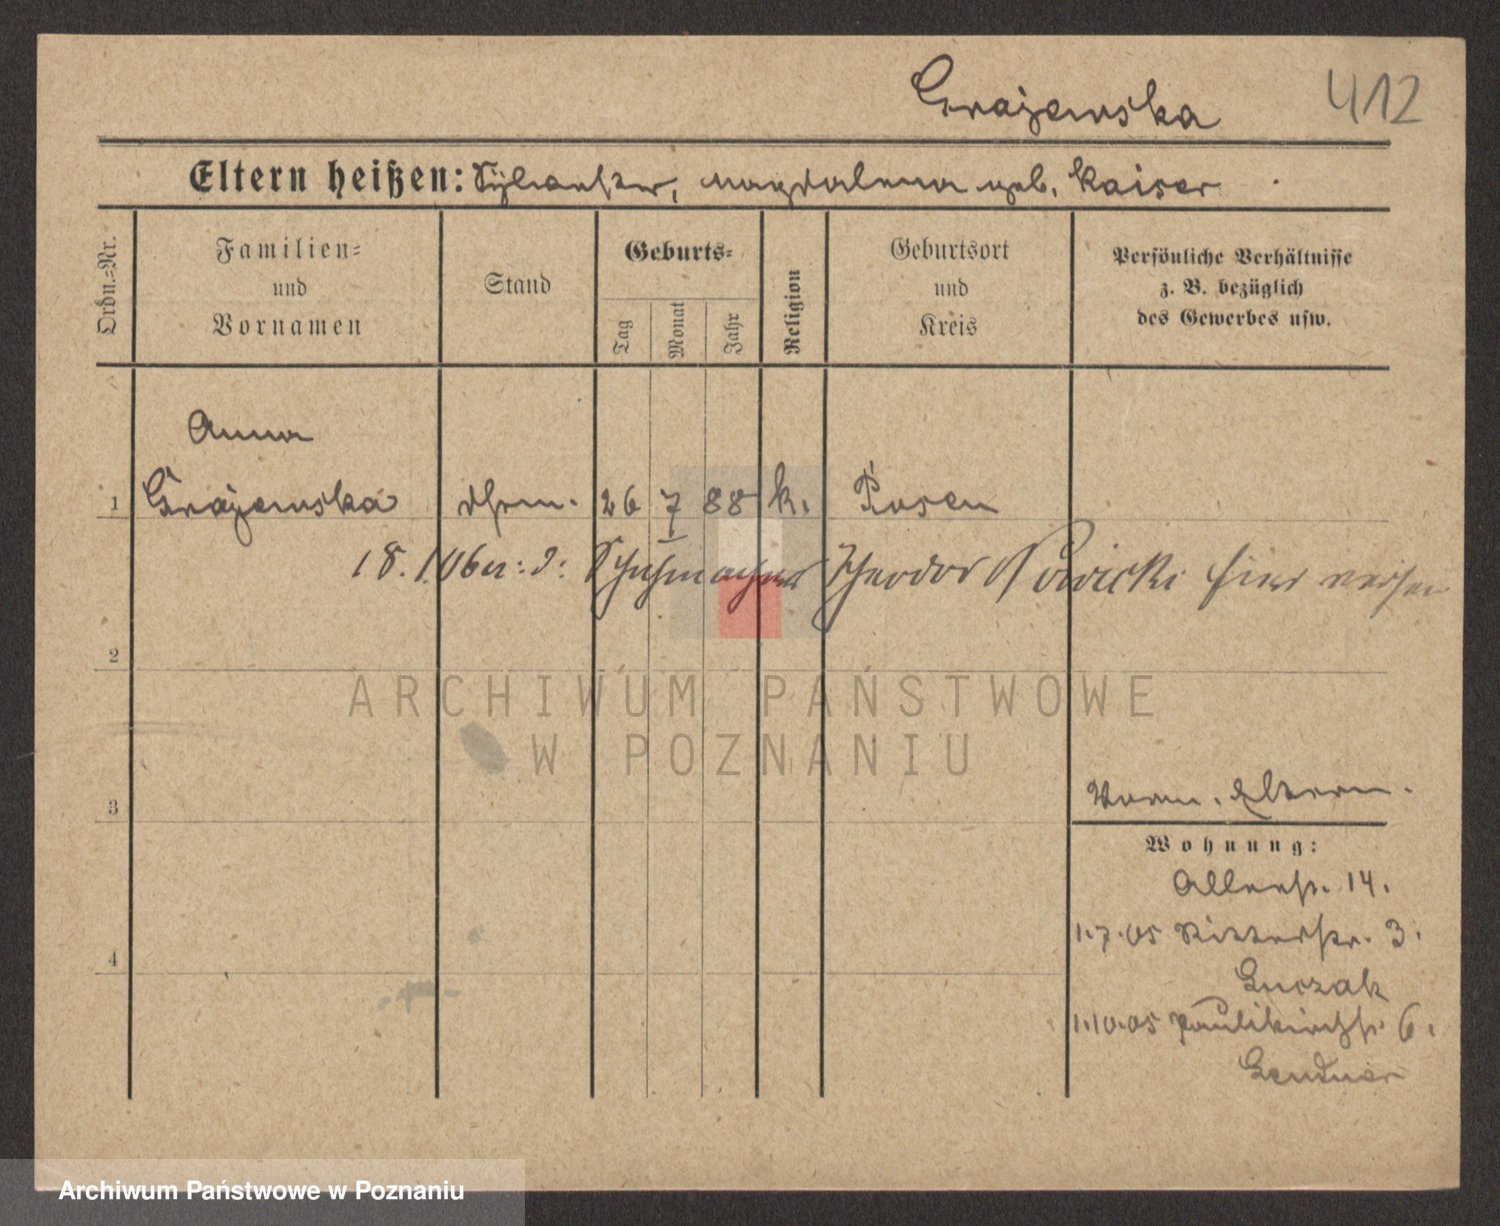 Grajewska 412
Eltern heißen: Sylvester, Magdalena geb. Kaiser
Ordn.-Nr.
Familien-
und
Vornamen
Stand
Geburts-
Tag
Monat
Jahr
Religion
Geburtsort
und
Kreis
Persönliche Verhältnisse
z. B. bezüglich
des Gewerbes usw.
Anna
1 Grajewska 26 7 88 k. Posen
18.1.06 Schuhmacher Theodor Nowicki hier
2
ARCHIWUM PAŃSTWOWE
W POZNANIU
3
Eltern.
Wohnung:
Alleestr. 14.
1.7.05 Ritterstr. 3.
4
Guczak
1.10.05 Paulikirchstr. 6.
Archiwum Państwowe w Poznaniu